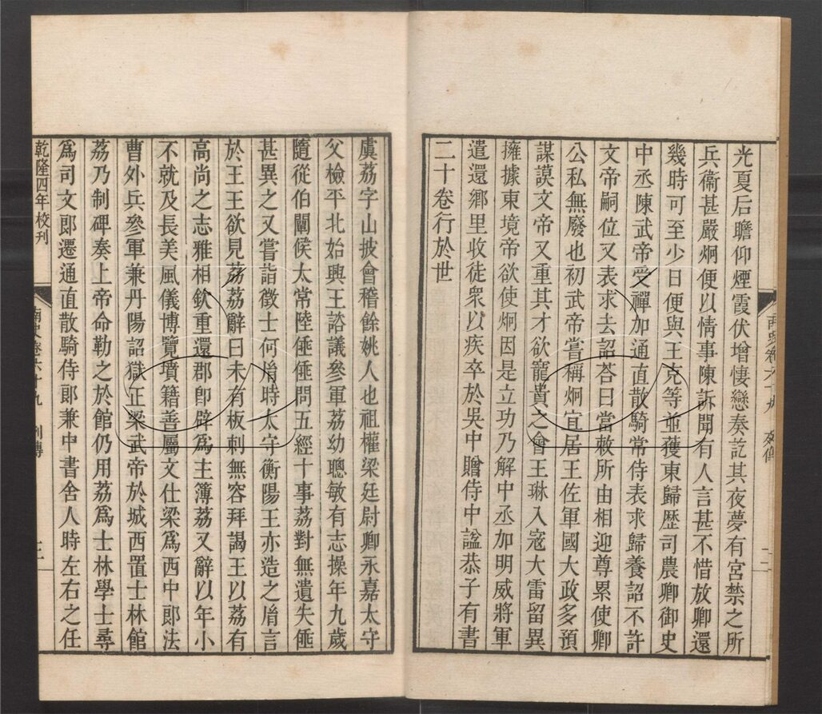 光夏后瞻仰煙霞伏增悽戀奏訖其夜夢有宮禁之所
兵衞甚嚴炯便以情事陳訴聞有人言甚不惜放卿還
幾時可至少日便與王克等並獲東歸歷司農卿御史
中丞陳武帝受禪加通直散騎常侍表求歸養詔不許
文帝嗣位又表求去詔荅曰當敕所由相迎尊累使卿
公私無廢也初武帝嘗稱炯宜居王佐軍國大政多預
謀謨文帝又重其才欲寵貴之會王琳入寇大雷留異
擁據東境帝欲使炯因是立功乃解中丞加明威將軍
遣還鄉里收徒衆以疾卒於吳中贈侍中諡恭子有書
二十卷行於世
虞荔字山披會稽餘姚人也祖權梁廷尉卿永嘉太守
父檢平北始興王諮議參軍荔幼聰敏有志操年九歲
隨從伯闡侯太常陸倕倕問五經十事荔對無遺失倕
甚異之又嘗詣徵士何胤時太守衡陽王亦造之胤言
於王王欲見荔荔辭曰未有板刺無容拜謁王以荔有
高尚之志雅相欽重還郡卽辟爲主簿荔又辭以年小
不就及長美風儀博覽墳籍善屬文仕梁爲西中郎法
曹外兵參軍兼丹陽詔獄正梁武帝於城西置士林館
荔乃制碑奏上帝命勒之於館仍用荔爲士林學士尋
爲司文郎遷通直散騎侍郎兼中書舍人時左右之任
乾隆四年校刊
南史卷六十九 列傳 三